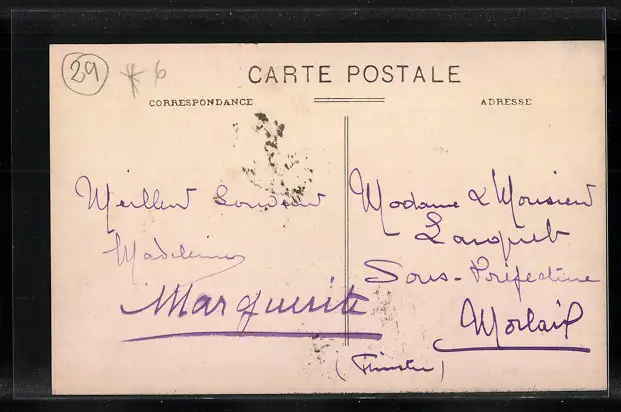 29 * 6
CARTE POSTALE
CORRESPONDANCE
ADRESSE
Meilleur Souvenir
Madeleine
Marguerite
Madame & Monsieur
Lanquet
Sous-Préfecture
Morlaix
(Finistère)